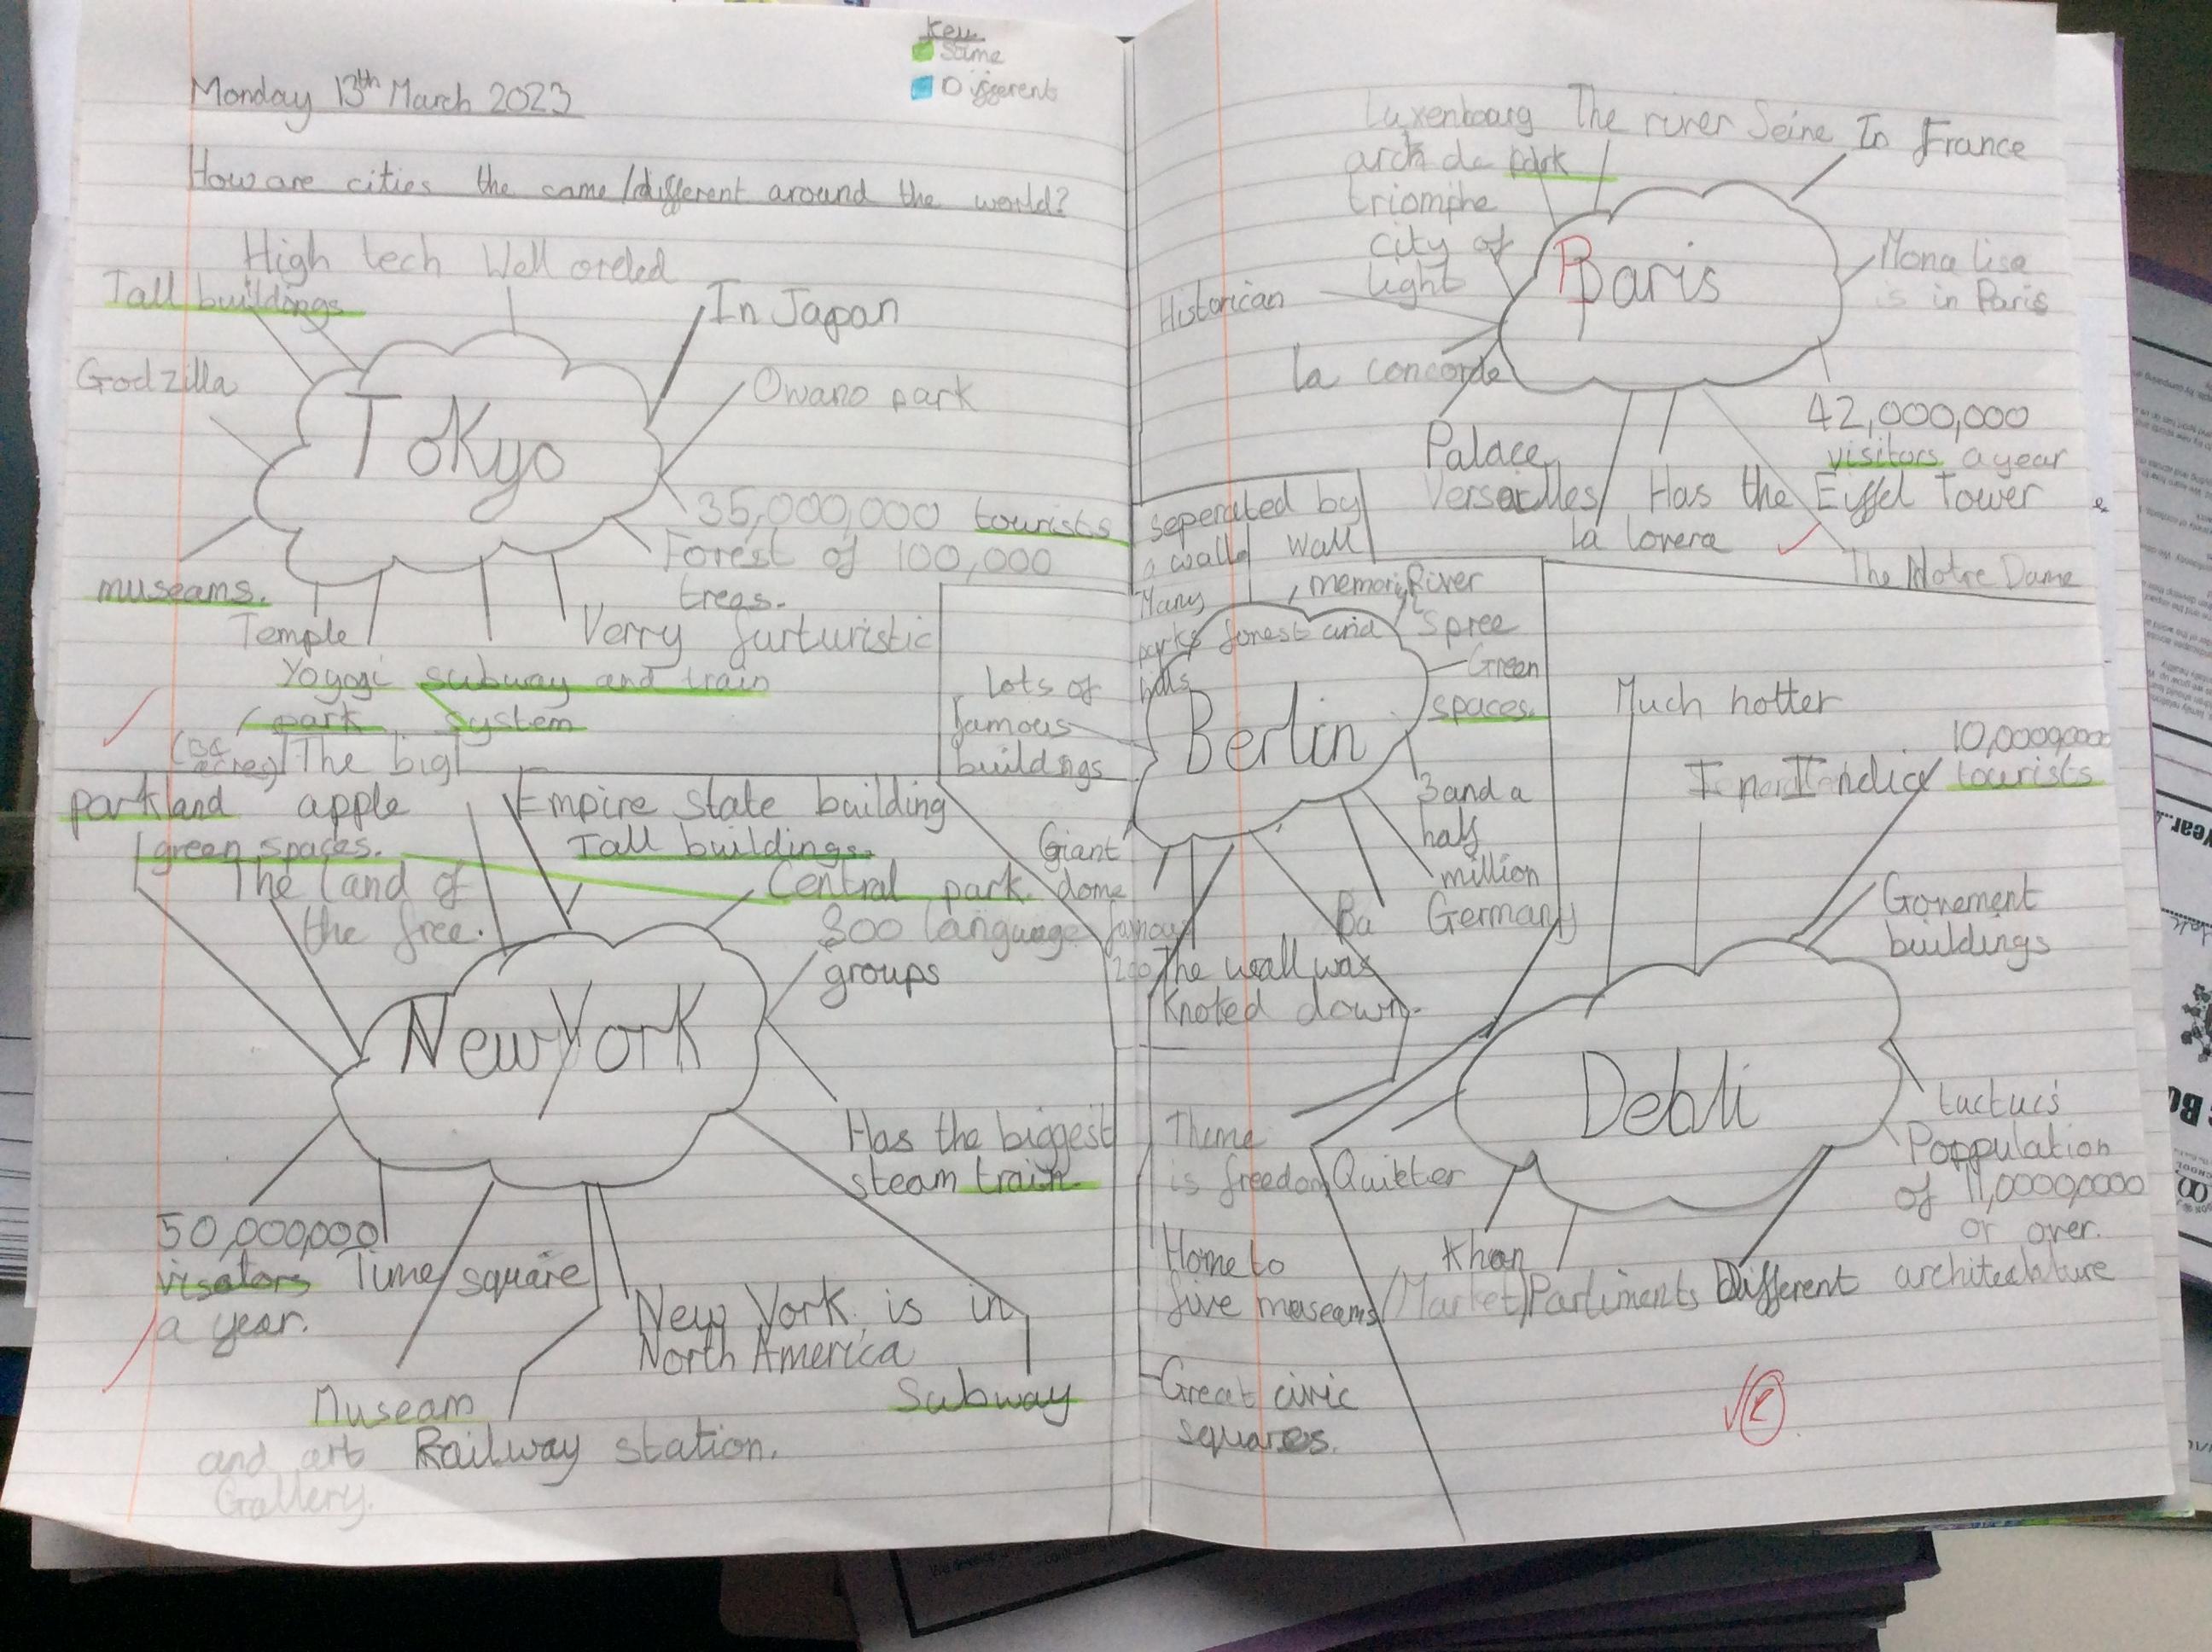 Key
Same
Different
Monday 13th March 2023
How are cities the same/different around the world?
High tech
Well orded
Tall buildings
In Japan
Godzilla
Owano park
Tokyo
35,000,000 tourists
Forest of 100,000
trees.
museams.
Temple
Verry furturistic
Yoyogi
park
subway and train
system
acres)
The big
apple
parkland
green spaces.
Empire state building
Tall buildings.
Central park.
The land of
the free.
800 language
groups
New York
Has the biggest
steam train.
50,000,000
visators
a year.
Time square
New York is in
North America
Subway
Museam
and art
Gallery.
Railway station.
Luxenbourg
park
The river Seine
In France
arch de
triomphe
city of
light
Paris
Mona lisa
is in Paris
Historican
la concorde
42,000,000
visitors a year
Palace
Versailles
Has the Eiffel Tower
la lovera
The Notre Dame
seperated by
a wall
Wall
memory
River
Spree
Many
parks forest and
hills
Green
spaces.
Lots of
famous
buildings
Berlin
3 and a
half
million
Germany
Giant
dome
famous
Ba
The wall was
Knoted down.
Theme
is freedom
Home to
five museams
Great civic
squares.
Much hotter
In India
10,0000,000
tourists
Goverment
buildings
Dehli
Quieter
Poppulation
of 11,0000,0000
or over.
Khan
Market
Parliments
Different architechture